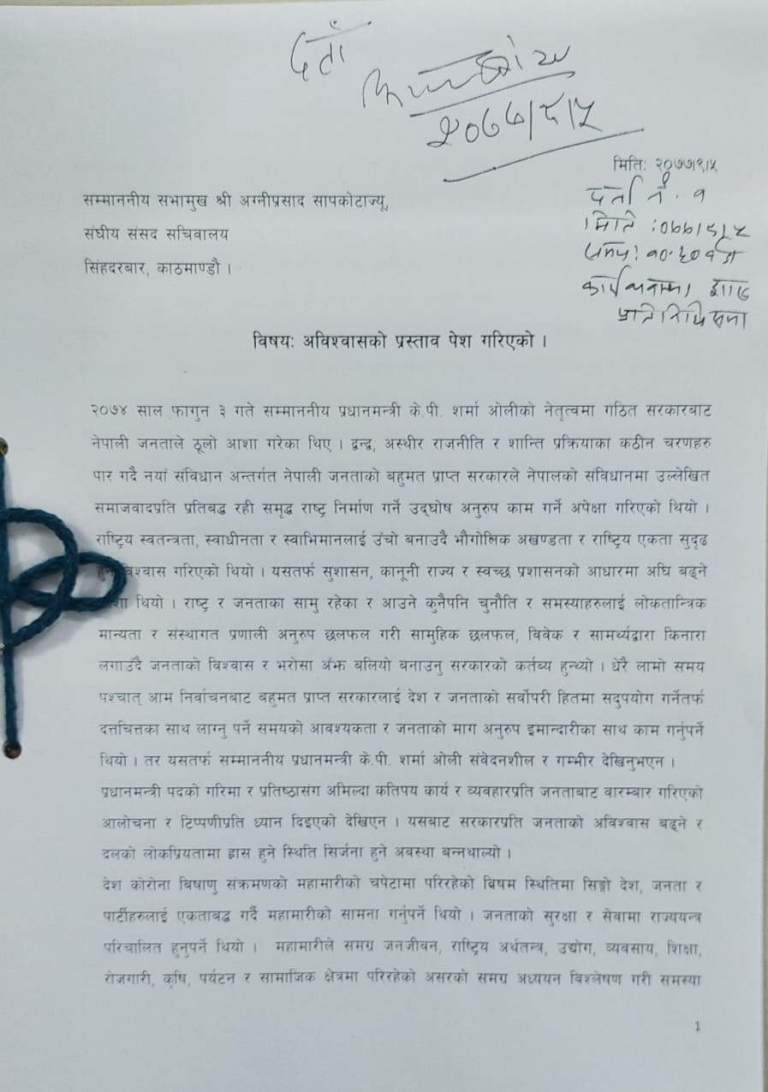 दर्ता
२०७७/९/५
मिति: २०७७।९।५
दर्ता नं. १
मिति : ०७७/९/५
सम्माननीय सभामुख श्री अग्नीप्रसाद सापकोटाज्यू,
संघीय संसद सचिवालय
सिंहदरबार, काठमाण्डौ ।
प्रतिनिधि सभा
विषय: अविश्वासको प्रस्ताव पेश गरिएको ।
२०७४ साल फागुन ३ गते सम्माननीय प्रधानमन्त्री के.पी. शर्मा ओलीको नेतृत्वमा गठित सरकारबाट
नेपाली जनताले ठूलो आशा गरेका थिए । द्वन्द्व, अस्थीर राजनीति र शान्ति प्रक्रियाका कठीन चरणहरु
पार गर्दै नयां संविधान अन्तर्गत नेपाली जनताको बहुमत प्राप्त सरकारले नेपालको संविधानमा उल्लेखित
समाजवादप्रति प्रतिबद्ध रही समृद्ध राष्ट्र निर्माण गर्ने उद्घोष अनुरुप काम गर्ने अपेक्षा गरिएको थियो ।
राष्ट्रिय स्वतन्त्रता, स्वाधीनता र स्वाभिमानलाई उँचो बनाउदै भौगोलिक अखण्डता र राष्ट्रिय एकता सुदृढ
विश्वास गरिएको थियो । यसतर्फ सुशासन, कानूनी राज्य र स्वच्छ प्रशासनको आधारमा अघि बढ्ने
थियो । राष्ट्र र जनताका सामु रहेका र आउने कुनैपनि चुनौति र समस्याहरुलाई लोकतान्त्रिक
मान्यता र संस्थागत प्रणाली अनुरुप छलफल गरी सामुहिक छलफल, विवेक र सामर्थ्यद्वारा किनारा
लगाउँदै जनताको विश्वास र भरोसा अझ बलियो बनाउनु सरकारको कर्तव्य हुन्थ्यो । धेरै लामो समय
पश्चात् आम निर्वाचनबाट बहुमत प्राप्त सरकारलाई देश र जनताको सर्वोपरी हितमा सदुपयोग गर्नेतर्फ
दत्तचित्तका साथ लाग्नु पर्ने समयको आवश्यकता र जनताको माग अनुरुप इमान्दारीका साथ काम गर्नुपर्ने
थियो । तर यसतर्फ सम्माननीय प्रधानमन्त्री के.पी. शर्मा ओली संवेदनशील र गम्भीर देखिनुभएन ।
प्रधानमन्त्री पदको गरिमा र प्रतिष्ठासंग अमिल्दा कतिपय कार्य र व्यवहारप्रति जनताबाट वारम्बार गरिएको
आलोचना र टिप्पणीप्रति ध्यान दिइएको देखिएन । यसबाट सरकारप्रति जनताको अविश्वास बढ्ने र
दलको लोकप्रियतामा ह्रास हुने स्थिति सिर्जना हुने अवस्था बन्नथाल्यो ।
देश कोरोना विषाणु संक्रमणको महामारीको चपेटामा परिरहेको विषम स्थितिमा सिङ्गो देश, जनता र
पार्टीहरुलाई एकताबद्ध गर्दै महामारीको सामना गर्नुपर्ने थियो । जनताको सुरक्षा र सेवामा राज्ययन्त्र
परिचालित हुनुपर्ने थियो । महामारीले समग्र जनजीवन, राष्ट्रिय अर्थतन्त्र, उद्योग, व्यवसाय, शिक्षा,
रोजगारी, कृषि, पर्यटन र सामाजिक क्षेत्रमा परिरहेको असरको समग्र अध्ययन विश्लेषण गरी समस्या
१